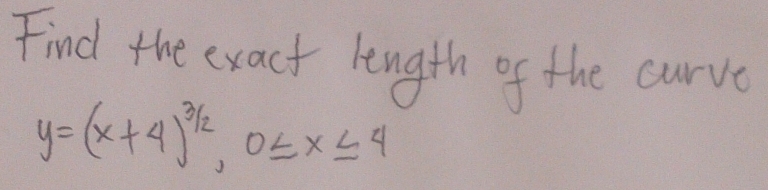 Find the exact length of the curve
y=(x+4)^{3/2}, 0≤x≤4